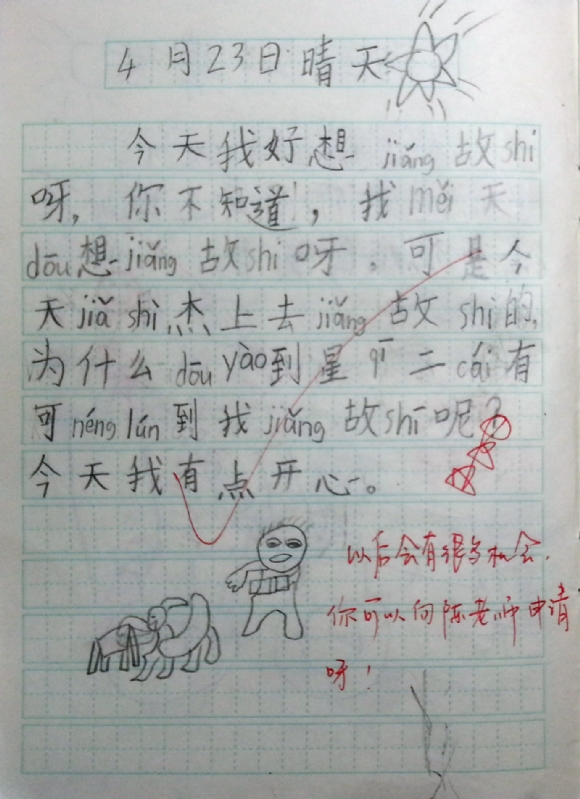 4月23日晴天
今天我好想jiǎng故shi
呀，你不知道，我měi天
dōu想jiǎng故shi呀。可是今
天jiǎ shì杰上去jiǎng故shi的,
为什么dōu yào到星qī二cái有
可néng lún到我jiǎng故shī呢？
今天我有点开心。
以后会有很多机会.
你可以向陈老师申请
呀！